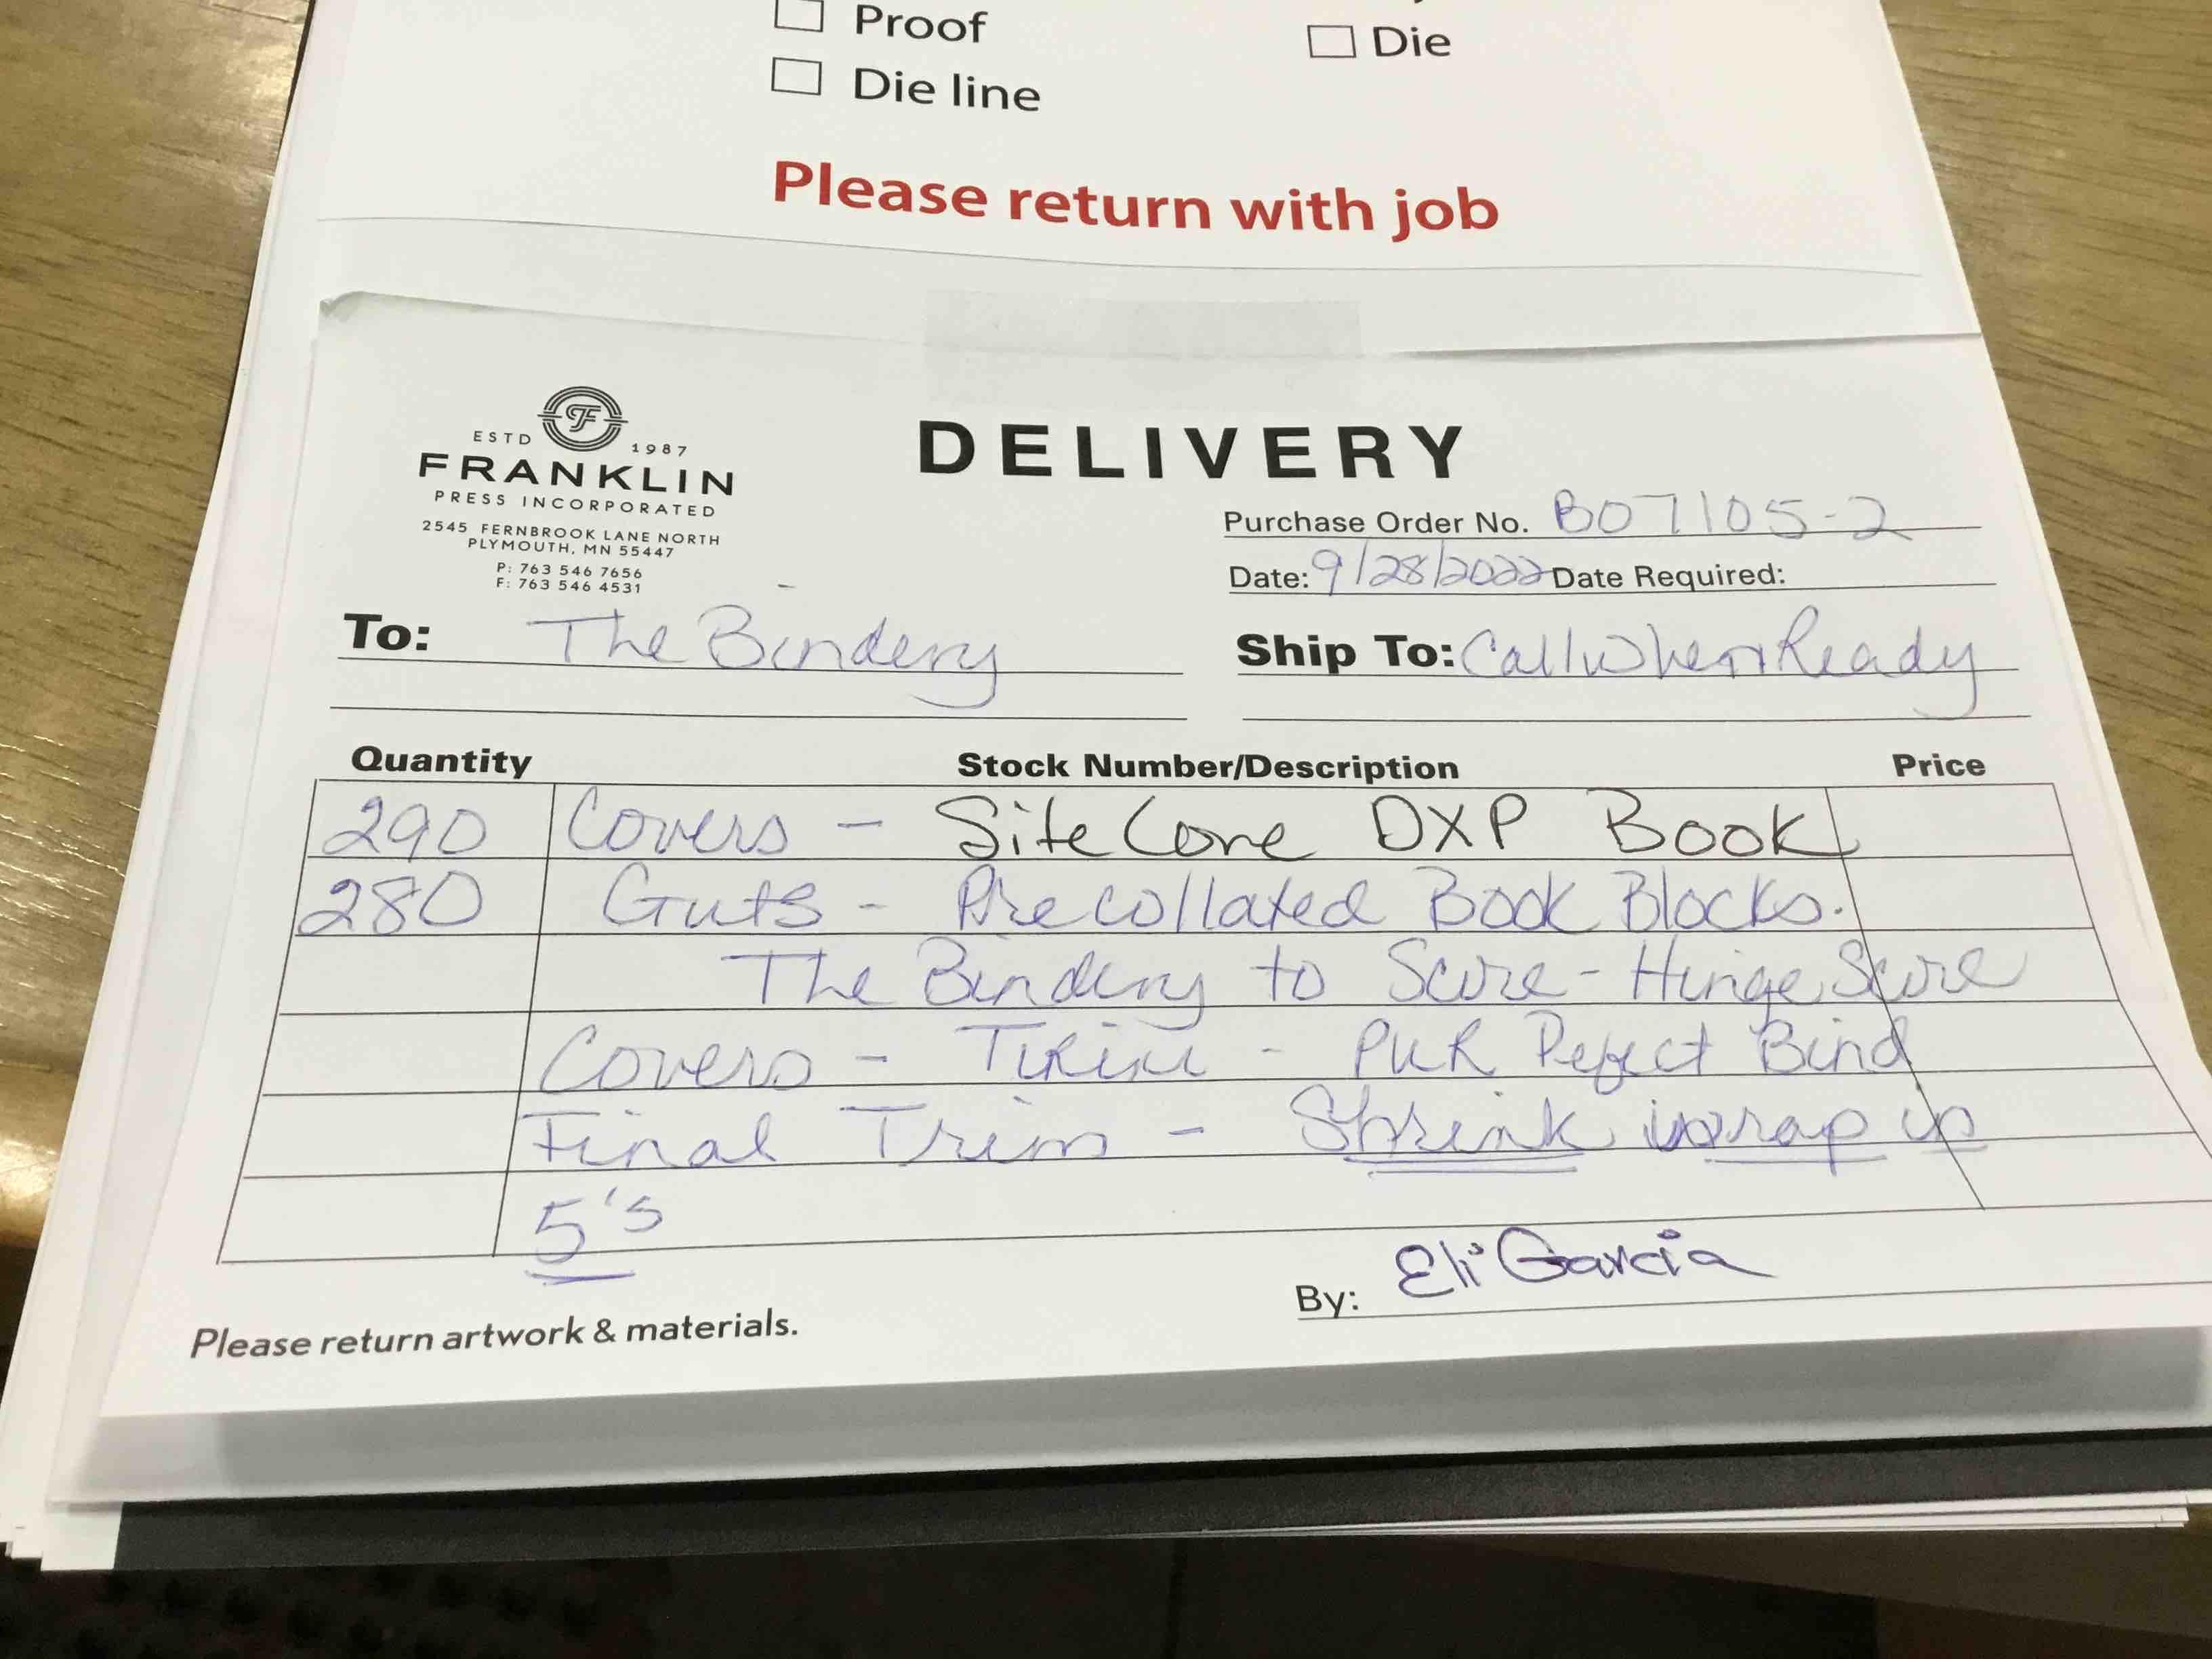 Proof
Die
Die line
Please return with job
ESTD 1987
FRANKLIN
PRESS INCORPORATED
2545 FERNBROOK LANE NORTH
PLYMOUTH, MN 55447
P: 763 546 7656
F: 763 546 4531
DELIVERY
Purchase Order No. B07105-2
Date: 9/28/2022 Date Required:
To: The Bindery
Ship To: Call When Ready
Quantity Stock Number/Description Price
290 Covers - SiteCore DXP Book
280 Guts - Precollated Book Blocks.
The Bindery to Score - Hinge Score
Covers - Trim - PUR Perfect Bind
Final Trim - Shrink wrap in
5's
By: Eli Garcia
Please return artwork & materials.